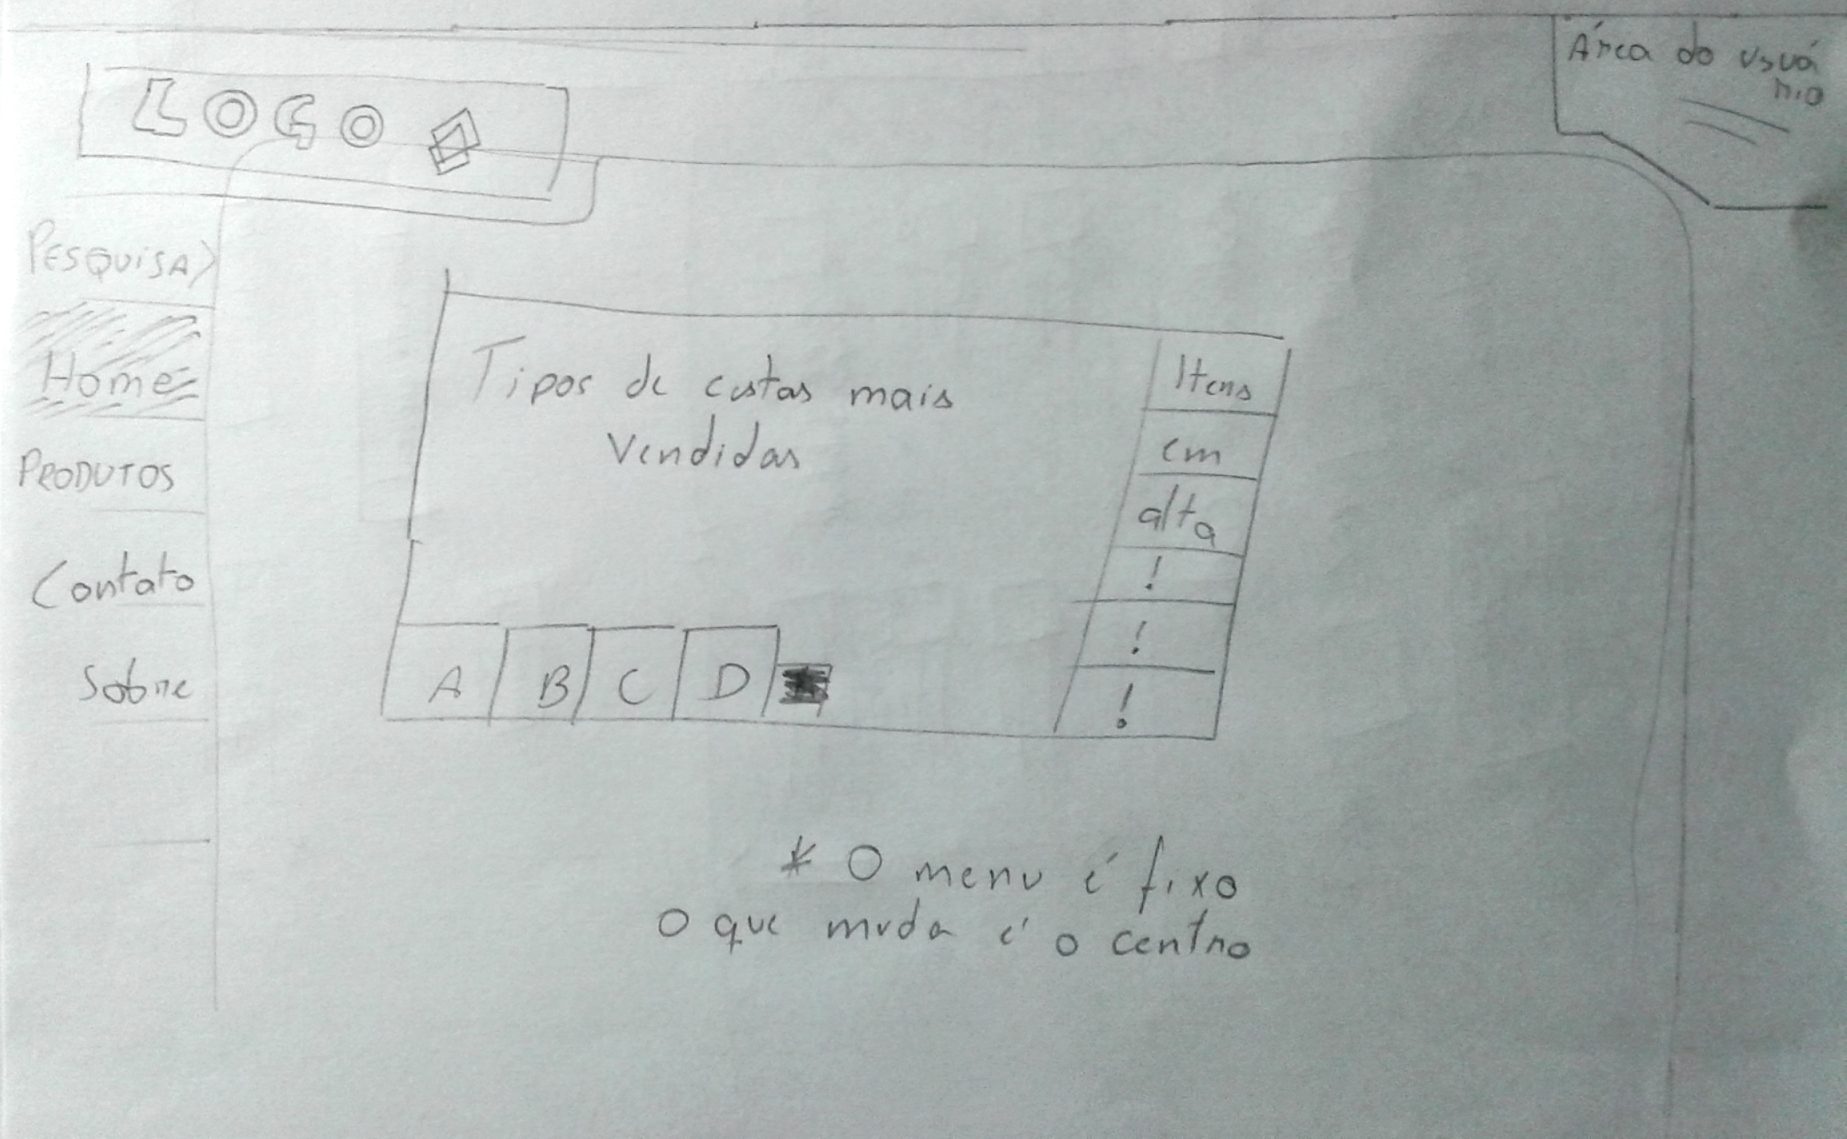 LOGO
Área do usuá
rio
PESQUISA
Home
PRODUTOS
Contato
Sobre
Tipos de custas mais
vendidas
Itens
em
alta
!
!
!
A B C D
* O menu é fixo
O que muda é o centro